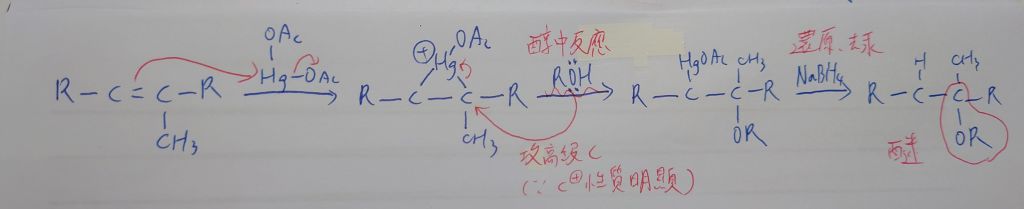 OAc
Hg-OAc
R-C=C-R
CH₃
⊕
Hg OAc
R-C-C-R
CH₃
醇中反應
RÖH
攻高級C
(∵ C⊕性質明顯)
HgOAc CH₃
R-C-C-R
OR
還原、去汞
NaBH₄
H CH₃
R-C-C-R
OR
醚